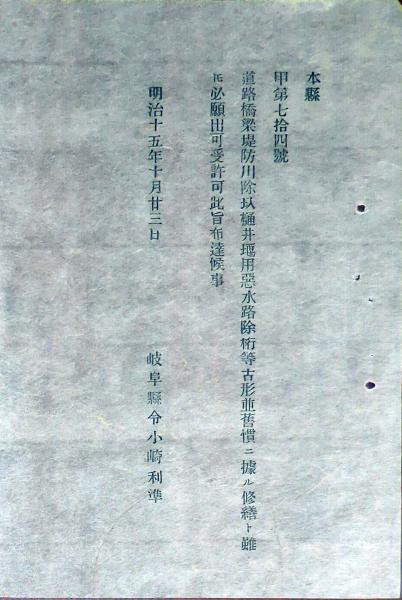 本縣
甲第七拾四號
道路橋梁堤防川除圦樋井堰用惡水路除桁等古形並舊慣ニ據ル修繕ト雖
𪜈必願出可受許可此旨布達候事
明治十五年十月廿三日
岐阜縣令小崎利準